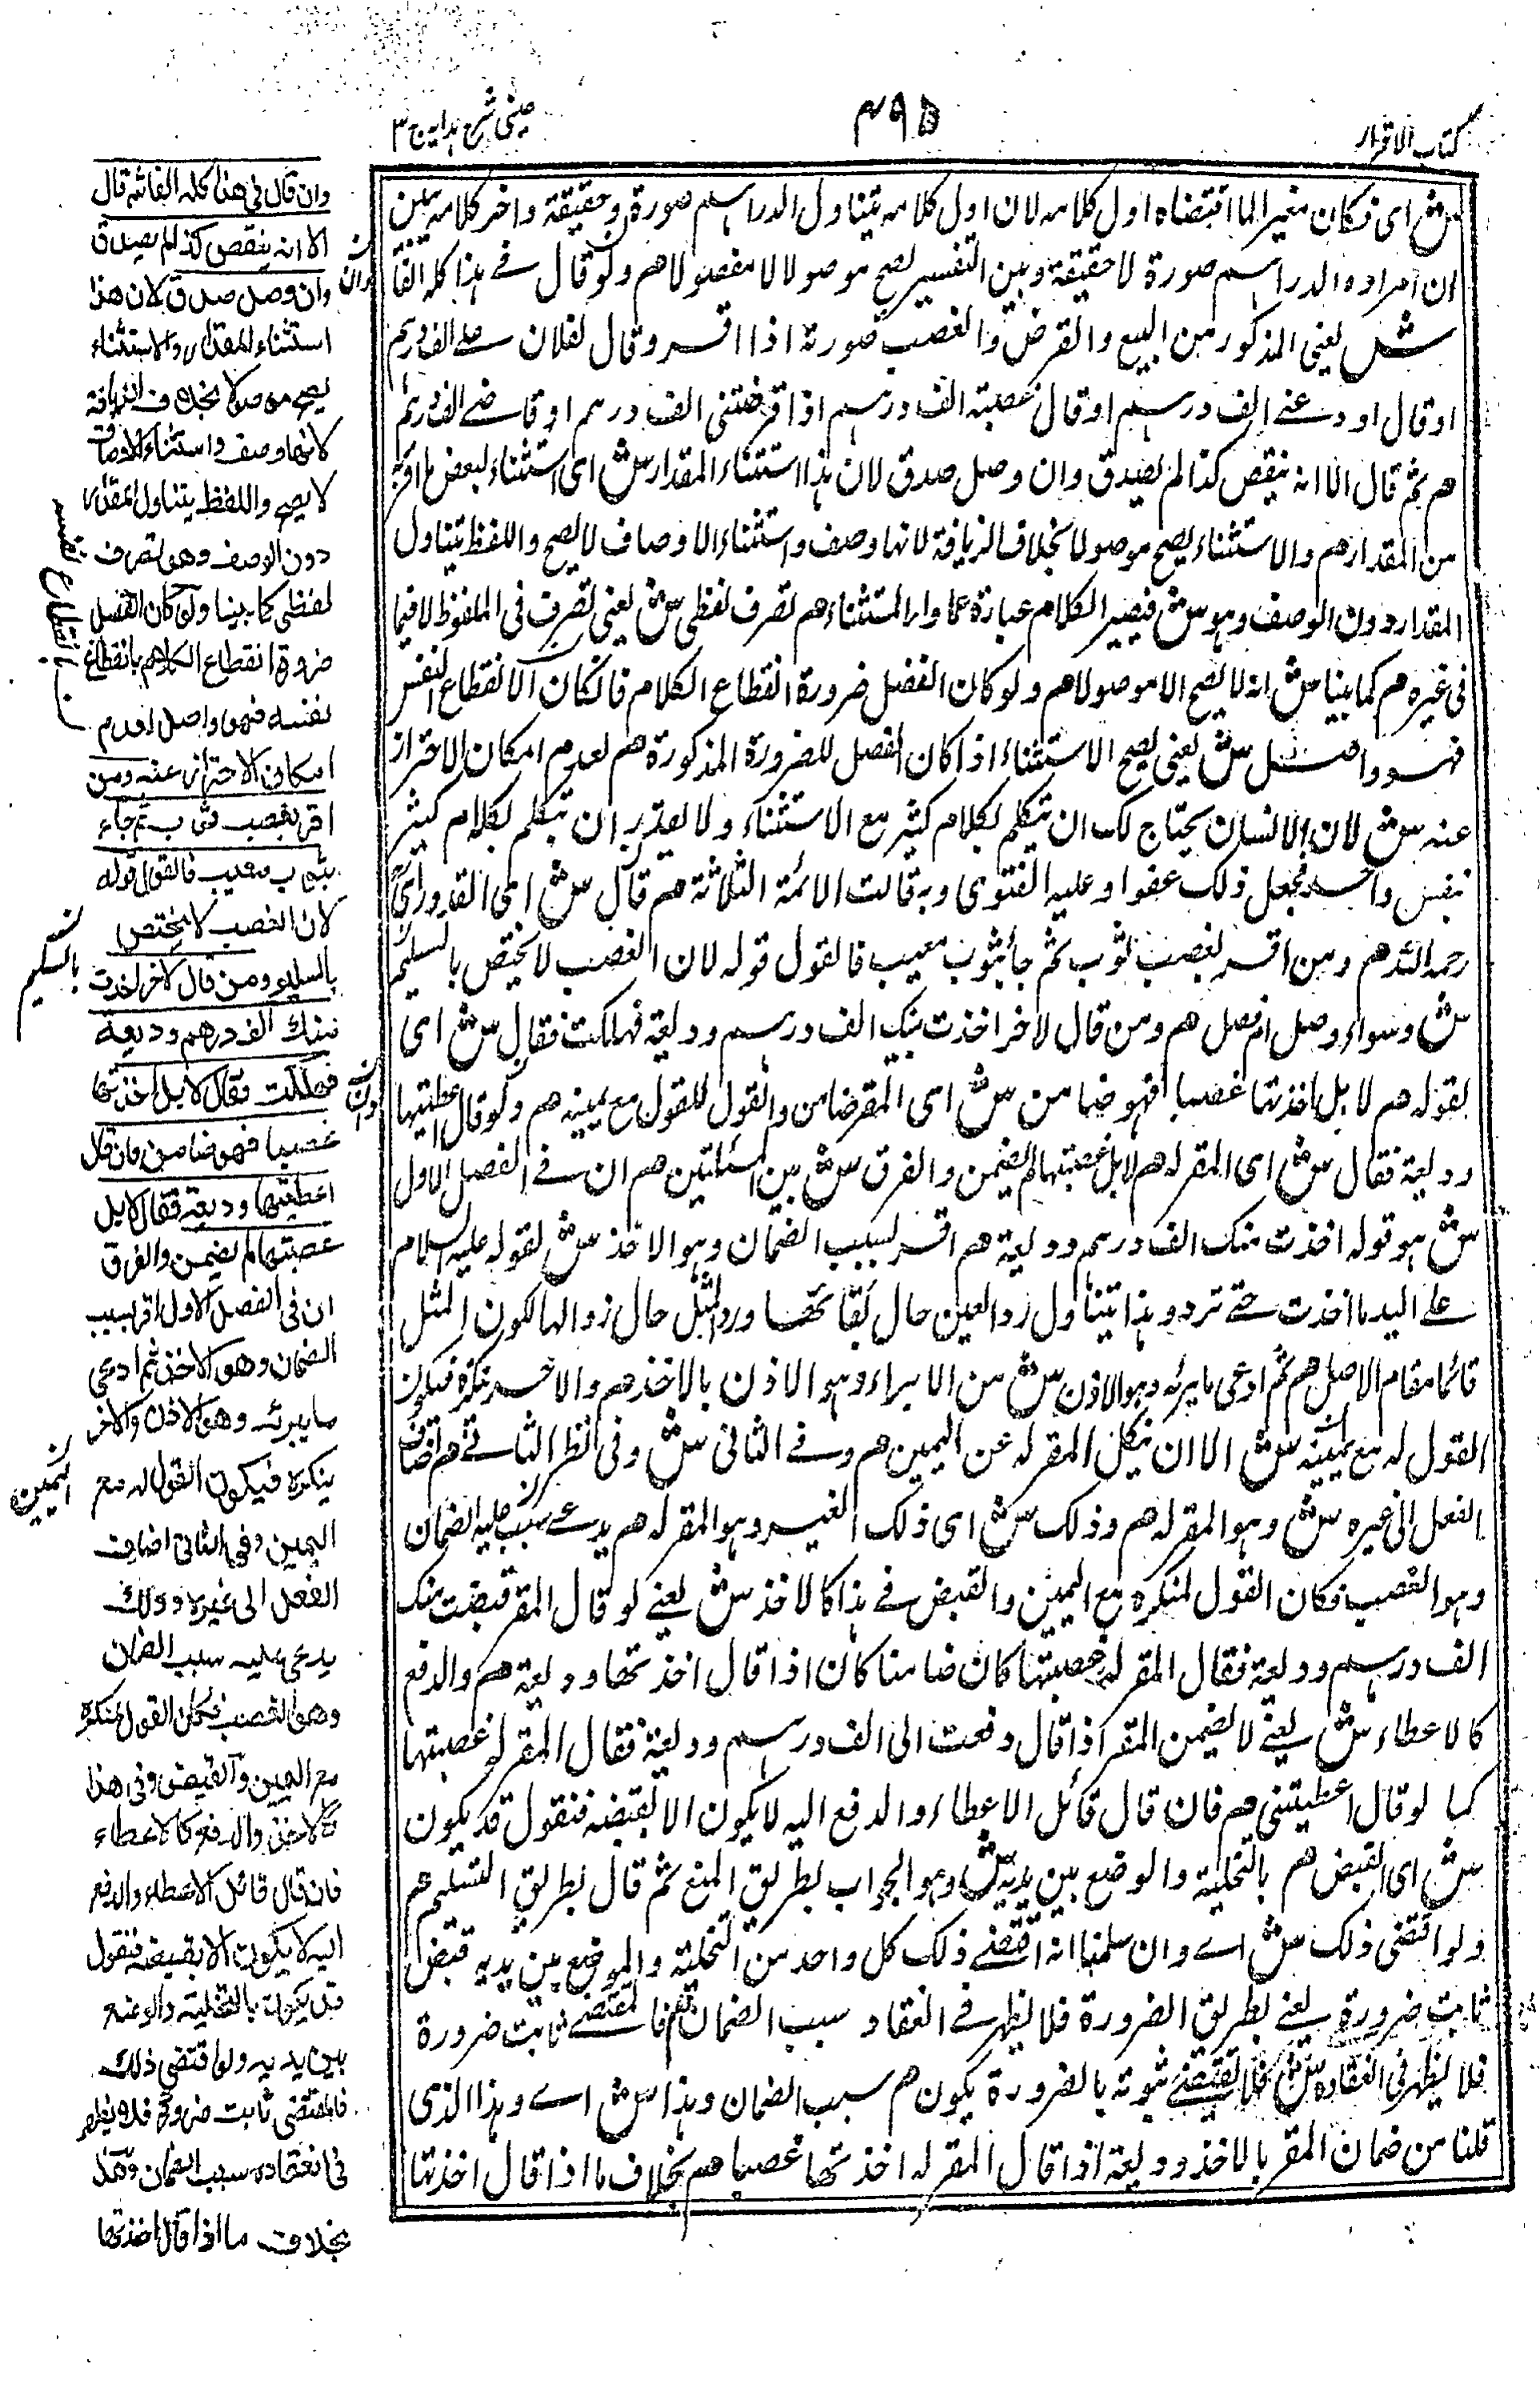 كتاب الاقرار
٤٩٥
عینی شرح ہدایہ ج ٣
ش اى فكان مغيرا لما اقتضاه اول كلامه لان اول كلامه يتناول الدراهم صورة وحقيقة واخر كلامه بين
ان مراده الدراهم صورة لا حقيقة وبين التفسير يصح موصولا لا مفصولا هم ولو قال فى هذا كله الفا
ش يعنى المذكور من البيع والقرض والغصب صورته اذا اقر وقال لفلان على الف درهم
او قال اودعنى الف درهم او قال غصبته الف درهم اذ اقرضتنى الف درهم او قاضى الف درهم
هم ثم قال الا انه ينقص كذا لم يصدق وان وصل صدق لان هذا استثناء المقدار ش اى استثناء لبعض ما اقر به
من المقدار هم والاستثناء يصح موصولا بخلاف الزيافة لانها وصف واستثناء الاوصاف لا يصح واللفظ يتناول
المقدار دون الوصف وهو ش فيصير الكلام عبارة عما وراء المستثناء هم تصرف لفظى ش يعنى تصرف فى الملفوظ لا فيما
فى غيره هم كما بينا ش انه لا يصح الا موصولا هم ولو كان الفصل ضرورة انقطاع الكلام فانكان الانقطاع النفس
فهو واصل ش يعنى يصح الاستثناء اذا كان الفصل للضرورة المذكورة هم لعدم امكان الاحتراز
عنه ش لان الانسان يحتاج لك ان يتكلم بكلام كثير مع الاستثناء ولا يقدر ان يتكلم بكلام كثير
بنفس واحد فجعل ذلك عفوا وعليه الفتوى وبه قالت الائمة الثلاثة هم قال ش اى القدورى
رحمه الله هم ومن اقر بغصب ثوب ثم جاء بثوب معيب فالقول قوله لان الغصب لا يختص بالسليم
ش وسواء وصل ام فصل هم ومن قال لاخر اخذت منك الف درهم وديعة فهلكت فقال ش اى
لقوله هم لا بل اخذتها غصبا فهو ضامن ش اى المقر ضامن والقول للقول مع يمينه هم ولو قال اعطيتها
وديعة فقال ش اى المقر له هم لا بل غصبتها لم يضمن والفرق ش بين المسئلتين هم ان فى الفصل الاول
ش هو قوله اخذت منك الف درهم وديعة هم اقر بسبب الضمان وهو الاخذ ش لقوله عليه السلام
على اليد ما اخذت حتى ترد وهذا يتناول رد العين حال بقائها ورد المثل حال زوالها لكون المثل
قائما مقام الاصل هم ثم ادعى ما يبرئه وهو الاذن ش من الابراء وهو الاذن بالاخذ هم والاخر ينكره فيكون
القول له مع يمينه ش الا ان ينكل المقر له عن اليمين هم وفى الثانى ش وفى النظر الثانى هم اضاف
الفعل الى غيره ش وهو المقر له هم وذلك ش اى ذلك الغير وهو المقر له هم يدعى سبب عليه الضمان
وهو الغصب فكان القول لمنكره مع اليمين والقبض فى هذا كالاخذ ش يعنى لو قال المقر قبضت منك
الف درهم وديعة فقال المقر له غصبتها كان ضامنا كان اذا قال اخذتها وديعة هم والدفع
كالاعطاء ش يعنى لا يضمن المقر اذا قال دفعت الى الف درهم وديعة فقال المقر له غصبتها
كما لو قال اعطيتنى هم فان قال قائل الاعطاء والدفع اليه لا يكون الا بقبضه فنقول قد يكون
ش اى القبض هم بالتخلية والوضع بين يديه ش وهو الجواب بطريق المنع ثم قال بطريق التسليم هم
ولو اقتضى ذلك ش اى وان سلمنا انه اقتضى ذلك كل واحد من التخلية والموضع بين يديه قبض
ثابت ضرورة يعنى بطريق الضرورة فلا يظهر فى انعقاد سبب الضمان هم فالمقتضى ثابت ضرورة
فلا يظهر فى انعقاده ش فلا يقتضى ثبوته بالضرورة يكون هم سبب الضمان وهذا ش اى وهذا الذى
قلنا من ضمان المقر بالاخذ وديعة اذا قال المقر له اخذتها غصبا هم بخلاف ما اذا قال اخذتها
وان قال فى هذا كله الفا ثم قال
الا انه ينقص كذا لم يصدق
وان وصل صدق لان هذا
استثناء المقدار والاستثناء
يصح موصولا بخلاف الزيافة
لانها وصف واستثناء الاوصاف
لا يصح واللفظ يتناول المقدار
دون الوصف وهو تصرف
لفظى كما بينا ولو كان الفصل
ضرورة انقطاع الكلام بانقطاع
نفسه فهو واصل لعدم
امكان الاحتراز عنه ومن
اقر بغصب ثوب ثم جاء
بثوب معيب فالقول قوله
لان الغصب لا يختص
بالسليم ومن قال لاخر اخذت
منك الف درهم وديعة
فهلكت فقال لا بل اخذتها
غصبا فهو ضامن وان قال
اعطيتها وديعة فقال لا بل
غصبتها لم يضمن والفرق
ان فى الفصل الاول اقر بسبب
الضمان وهو الاخذ ثم ادعى
ما يبرئه وهو الاذن والاخر
ينكره فيكون القول له مع
اليمين وفى الثانى اضاف
الفعل الى غيره وذلك
يدعى عليه سبب الضمان
وهو الغصب فكان القول لمنكره
مع اليمين والقبض فى هذا
كالاخذ والدفع كالاعطاء
فان قال قائل الاعطاء والدفع
اليه لا يكون الا بقبضه فنقول
قد يكون بالتخلية والوضع
بين يديه ولو اقتضى ذلك
فالمقتضى ثابت ضرورة فلا يظهر
فى انعقاده سبب الضمان وهذا
بخلاف ما اذا قال اخذتها
بانقطاع نفسه
بالسليم
اليمين